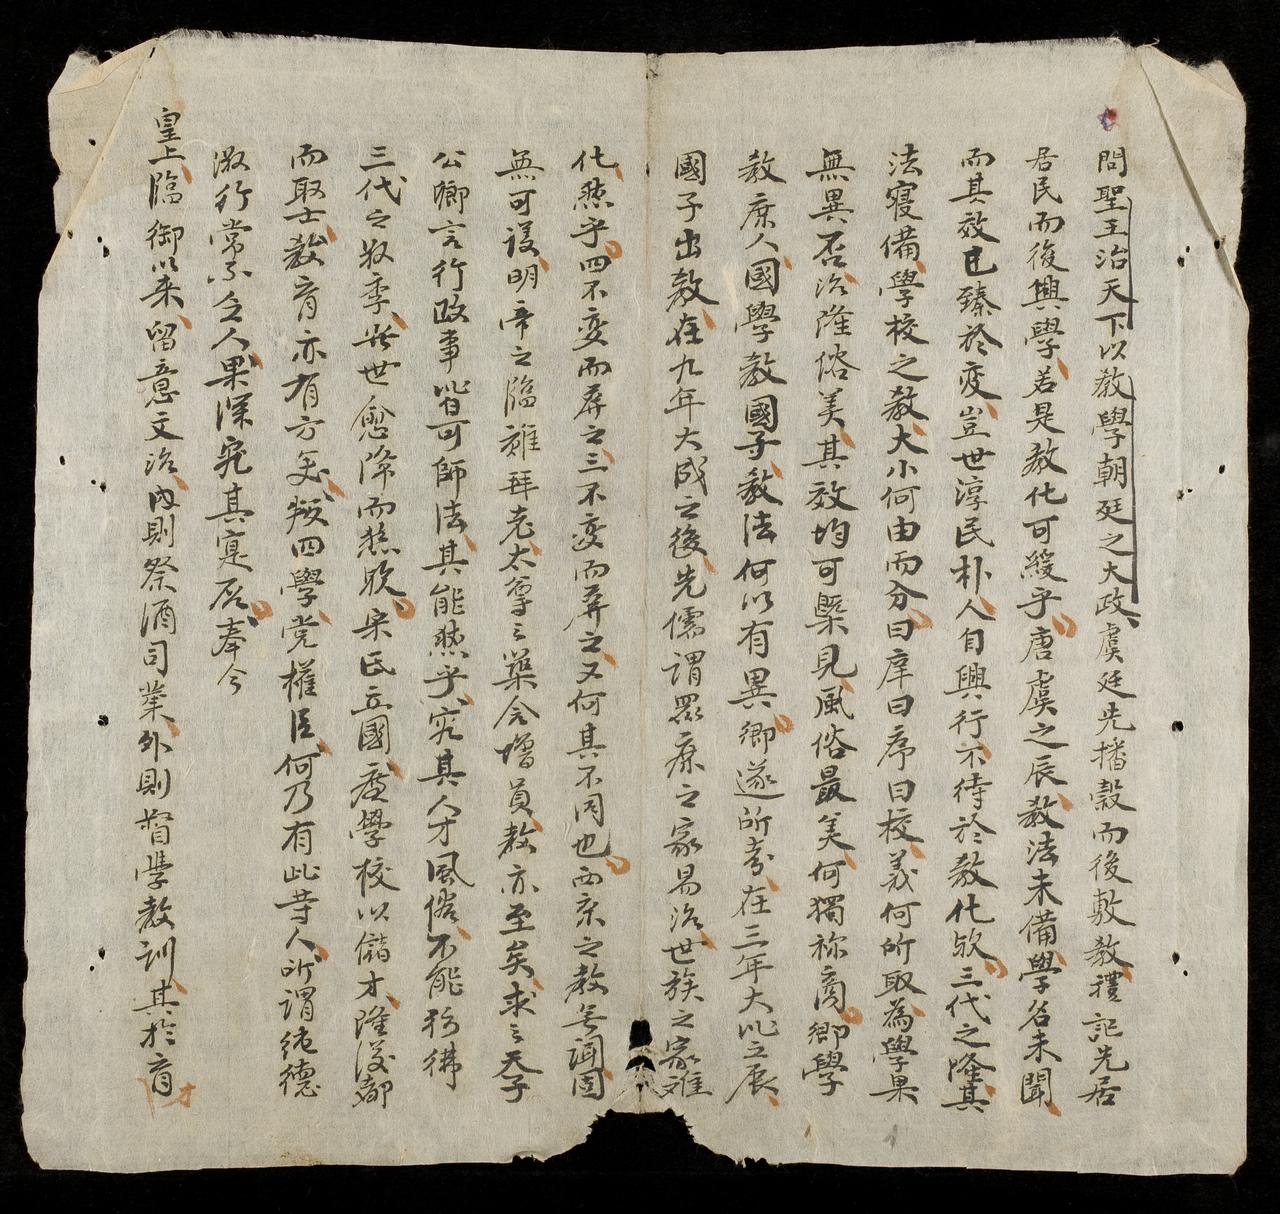 問聖王治天下以教學朝廷之大政虞廷先播穀而後敷教禮記先居
居民而後興學若是教化可緩乎唐虞之辰教法未備學名未聞
而其效已臻於變豈世淳民朴人自興行不待於教化欤三代之隆其
法寖備學校之教大小何由而分曰庠曰序曰校義何所取為學果
無異否治隆俗美其效均可槩見風俗最美何獨祢商鄉學
教庶人國學教國子教法何以有異鄉遂所夸在三年大比之辰
國子出教在九年大成之後先儒謂眾庶之家易治世族之家难
化然乎四不变而屏之三不变而屏之又何其不同也西京之教無聞固
無可議明帝之臨雍拜老太學之築舍增員教亦至矣求之天子
公卿言行政事皆可師法其能然乎究其人才風俗不能彷彿
三代之叔季豈世愈降而然欤宋氏立國慶學校以儲才隆後
而取士教育亦有方矣叛四學党權臣何乃有此等人所謂德
激行常不乏人果深究其寔否奉今
皇上臨御以来留意文治内則祭酒司業外則督學教訓其於育
才